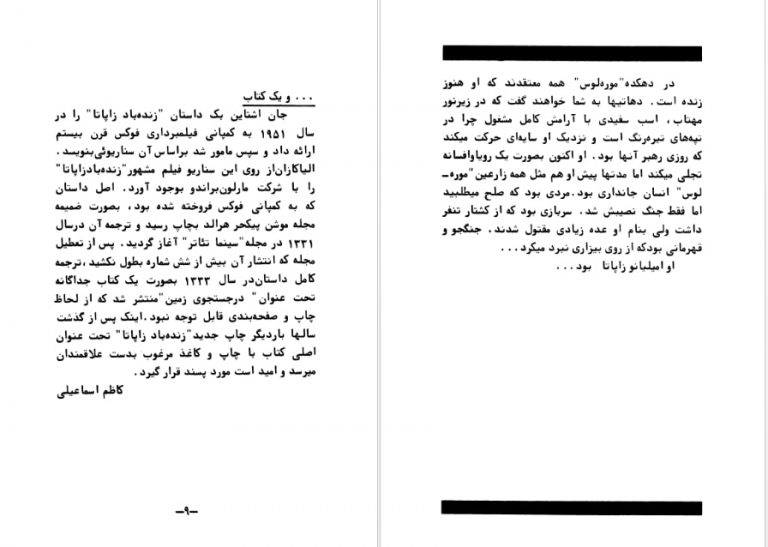 در دهکده"موره‌لوس" همه معتقدند که او هنوز
زنده است. دهاتیها به شما خواهند گفت که در زیرنور
مهتاب، اسب سفیدی با آرامش کامل مشغول چرا در
تپه‌های تیره‌رنگ است و نزدیک او سایه‌ای حرکت میکند
که روزی رهبر آنها بود. او اکنون بصورت یک رویا‌وافسانه
تجلی میکند اما مدتها پیش‌او هم مثل همه زارعین"موره‌ـ
لوس" انسان جانداری بود.مردی بود که صلح میطلبید
اما فقط جنگ نصیبش شد. سربازی بود که از کشتار تنفر
داشت ولی بنام او عده زیادی مقتول شدند. جنگجو و
قهرمانی بودکه از روی بیزاری نبرد میکرد...
او امیلیانو زاپاتا بود...
... و یک کتاب
جان اشتاین بک داستان "زنده‌باد زاپاتا" را در
سال ۱۹۵۱ به کمپانی فیلمبرداری فوکس قرن بیستم
ارائه داد و سپس مامور شد براساس آن سناریوئی‌بنویسد.
الیاکازان‌از روی این سناریو فیلم مشهور"زنده‌بادزاپاتا"
را با شرکت مارلون‌براندو بوجود آورد. اصل داستان
که به کمپانی فوکس فروخته شده بود، بصورت ضمیمه
مجله موشن پیکحر هرالد بچاپ رسید و ترجمه آن درسال
۱۳۳۱ در مجله"سینما تئاتر" آغاز گردید. پس از تعطیل
مجله که انتشار آن بیش از شش شماره بطول نکشید،ترجمه
کامل داستان‌در سال ۱۳۳۳ بصورت یک کتاب جداگانه
تحت عنوان" درجستجوی زمین"منتشر شد که از لحاظ
چاپ و صفحه‌بندی قابل توجه نبود.اینک پس از گذشت
سالها باردیگر چاپ جدید"زنده‌باد زاپاتا" تحت عنوان
اصلی کتاب با چاپ و کاغذ مرغوب بدست علاقمندان
میرسد و امید است مورد پسند قرار گیرد.
کاظم اسماعیلی
ـ۹ـ